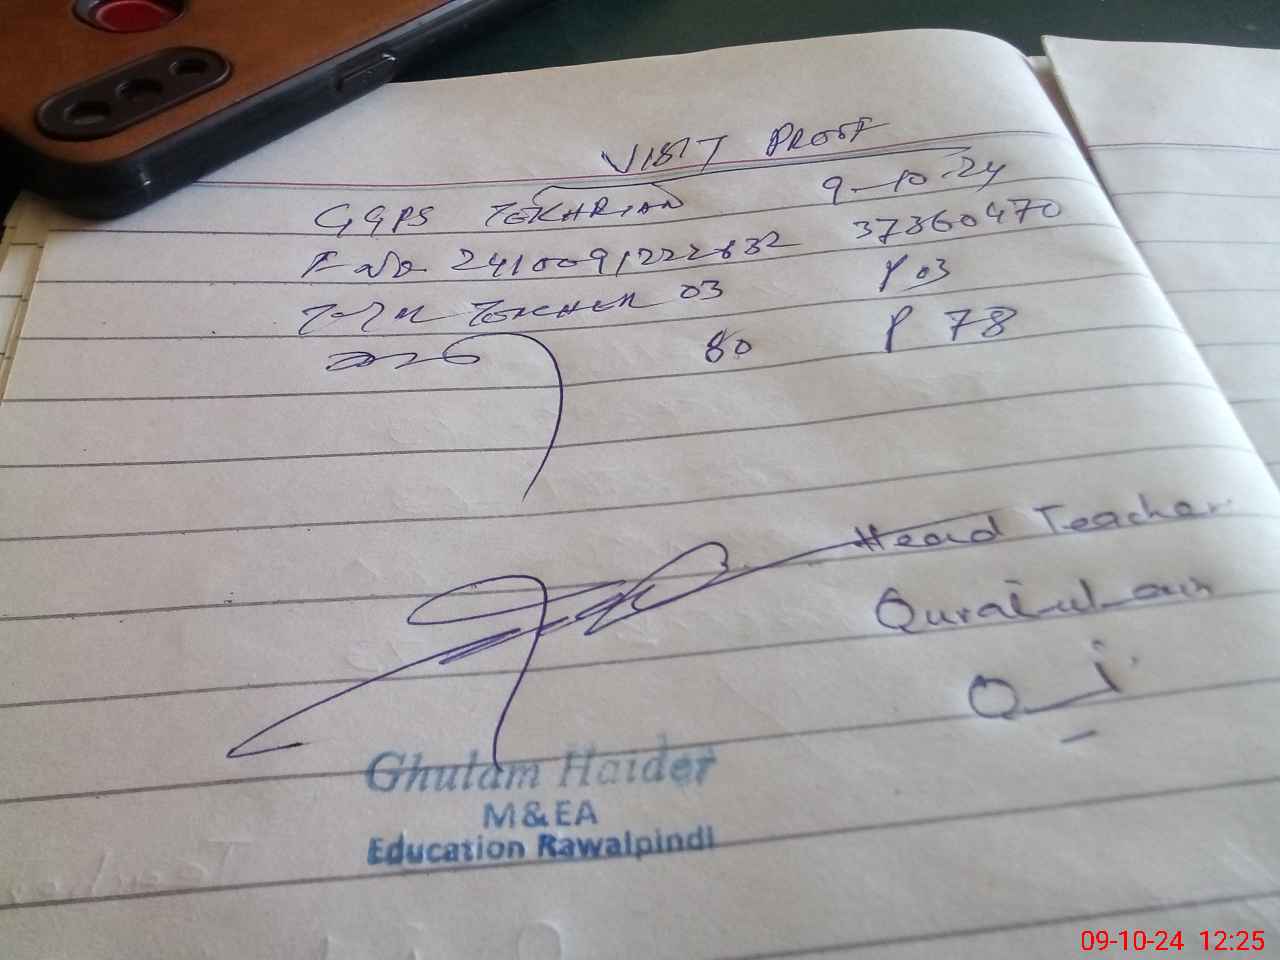 VISIT PROOF
GGPS TOKHRIAN 9-10-24
F No 2410091222632 37360470
Total Teacher 03 P 03
80 P 78
Head Teacher
Qurat-ul-ain
Ghulam Haider
M&EA
Education Rawalpindi
09-10-24 12:25